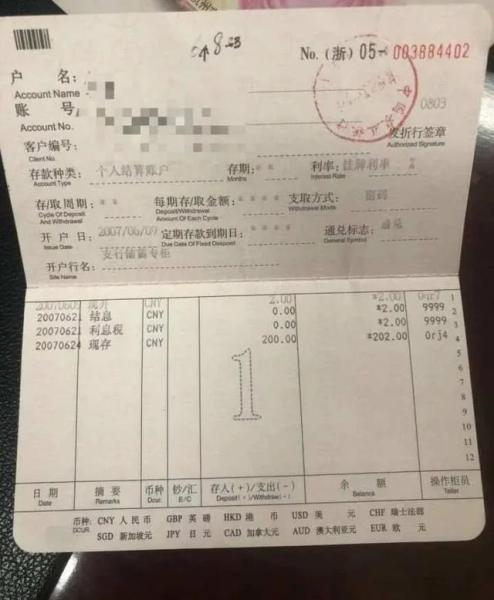 No. (浙) 05- 003884402
户 名:
Account Name
账 号
Account No.
0803
客户编号:
Client No.
发折行签章
Authorized Signature
存款种类: 个人结算账户 存期: ** 利率: 挂牌利率 %
Account Type Months Interest Rate
存/取周期: ** 每期存/取金额: **** 支取方式: 密码
Cycle Of Deposit And Withdrawal Deposit/Withdrawal Amount Of Each Cycle Withdrawal Mode
开 户 日: 2007/06/09 定期存款到期日: **** 通兑标志: 通兑
Issue Date Due Date Of Fixed Deposit General Symbol
开户行名: 支行储蓄专柜
Site Name
20070609 现开 CNY 2.00 *2.00 0ar7 1
20070621 结息 CNY 0.00 *2.00 9999 2
20070621 利息税 CNY 0.00 *2.00 9999 3
20070624 现存 CNY 200.00 *202.00 0rj4 4
5
6
7
8
9
10
11
12
1
日 期 摘 要 币种 钞/汇 存入(+)/支出(-) 余 额 操作柜员
Date Remarks Dcur. E/C Deposit(+)/Withdraw(-) Balance Teller
币种: CNY 人 民 币 GBP 英 镑 HKD 港 币 USD 美 元 CHF 瑞士法郎
DCUR. SGD 新加坡元 JPY 日 元 CAD 加拿大元 AUD 澳大利亚元 EUR 欧 元